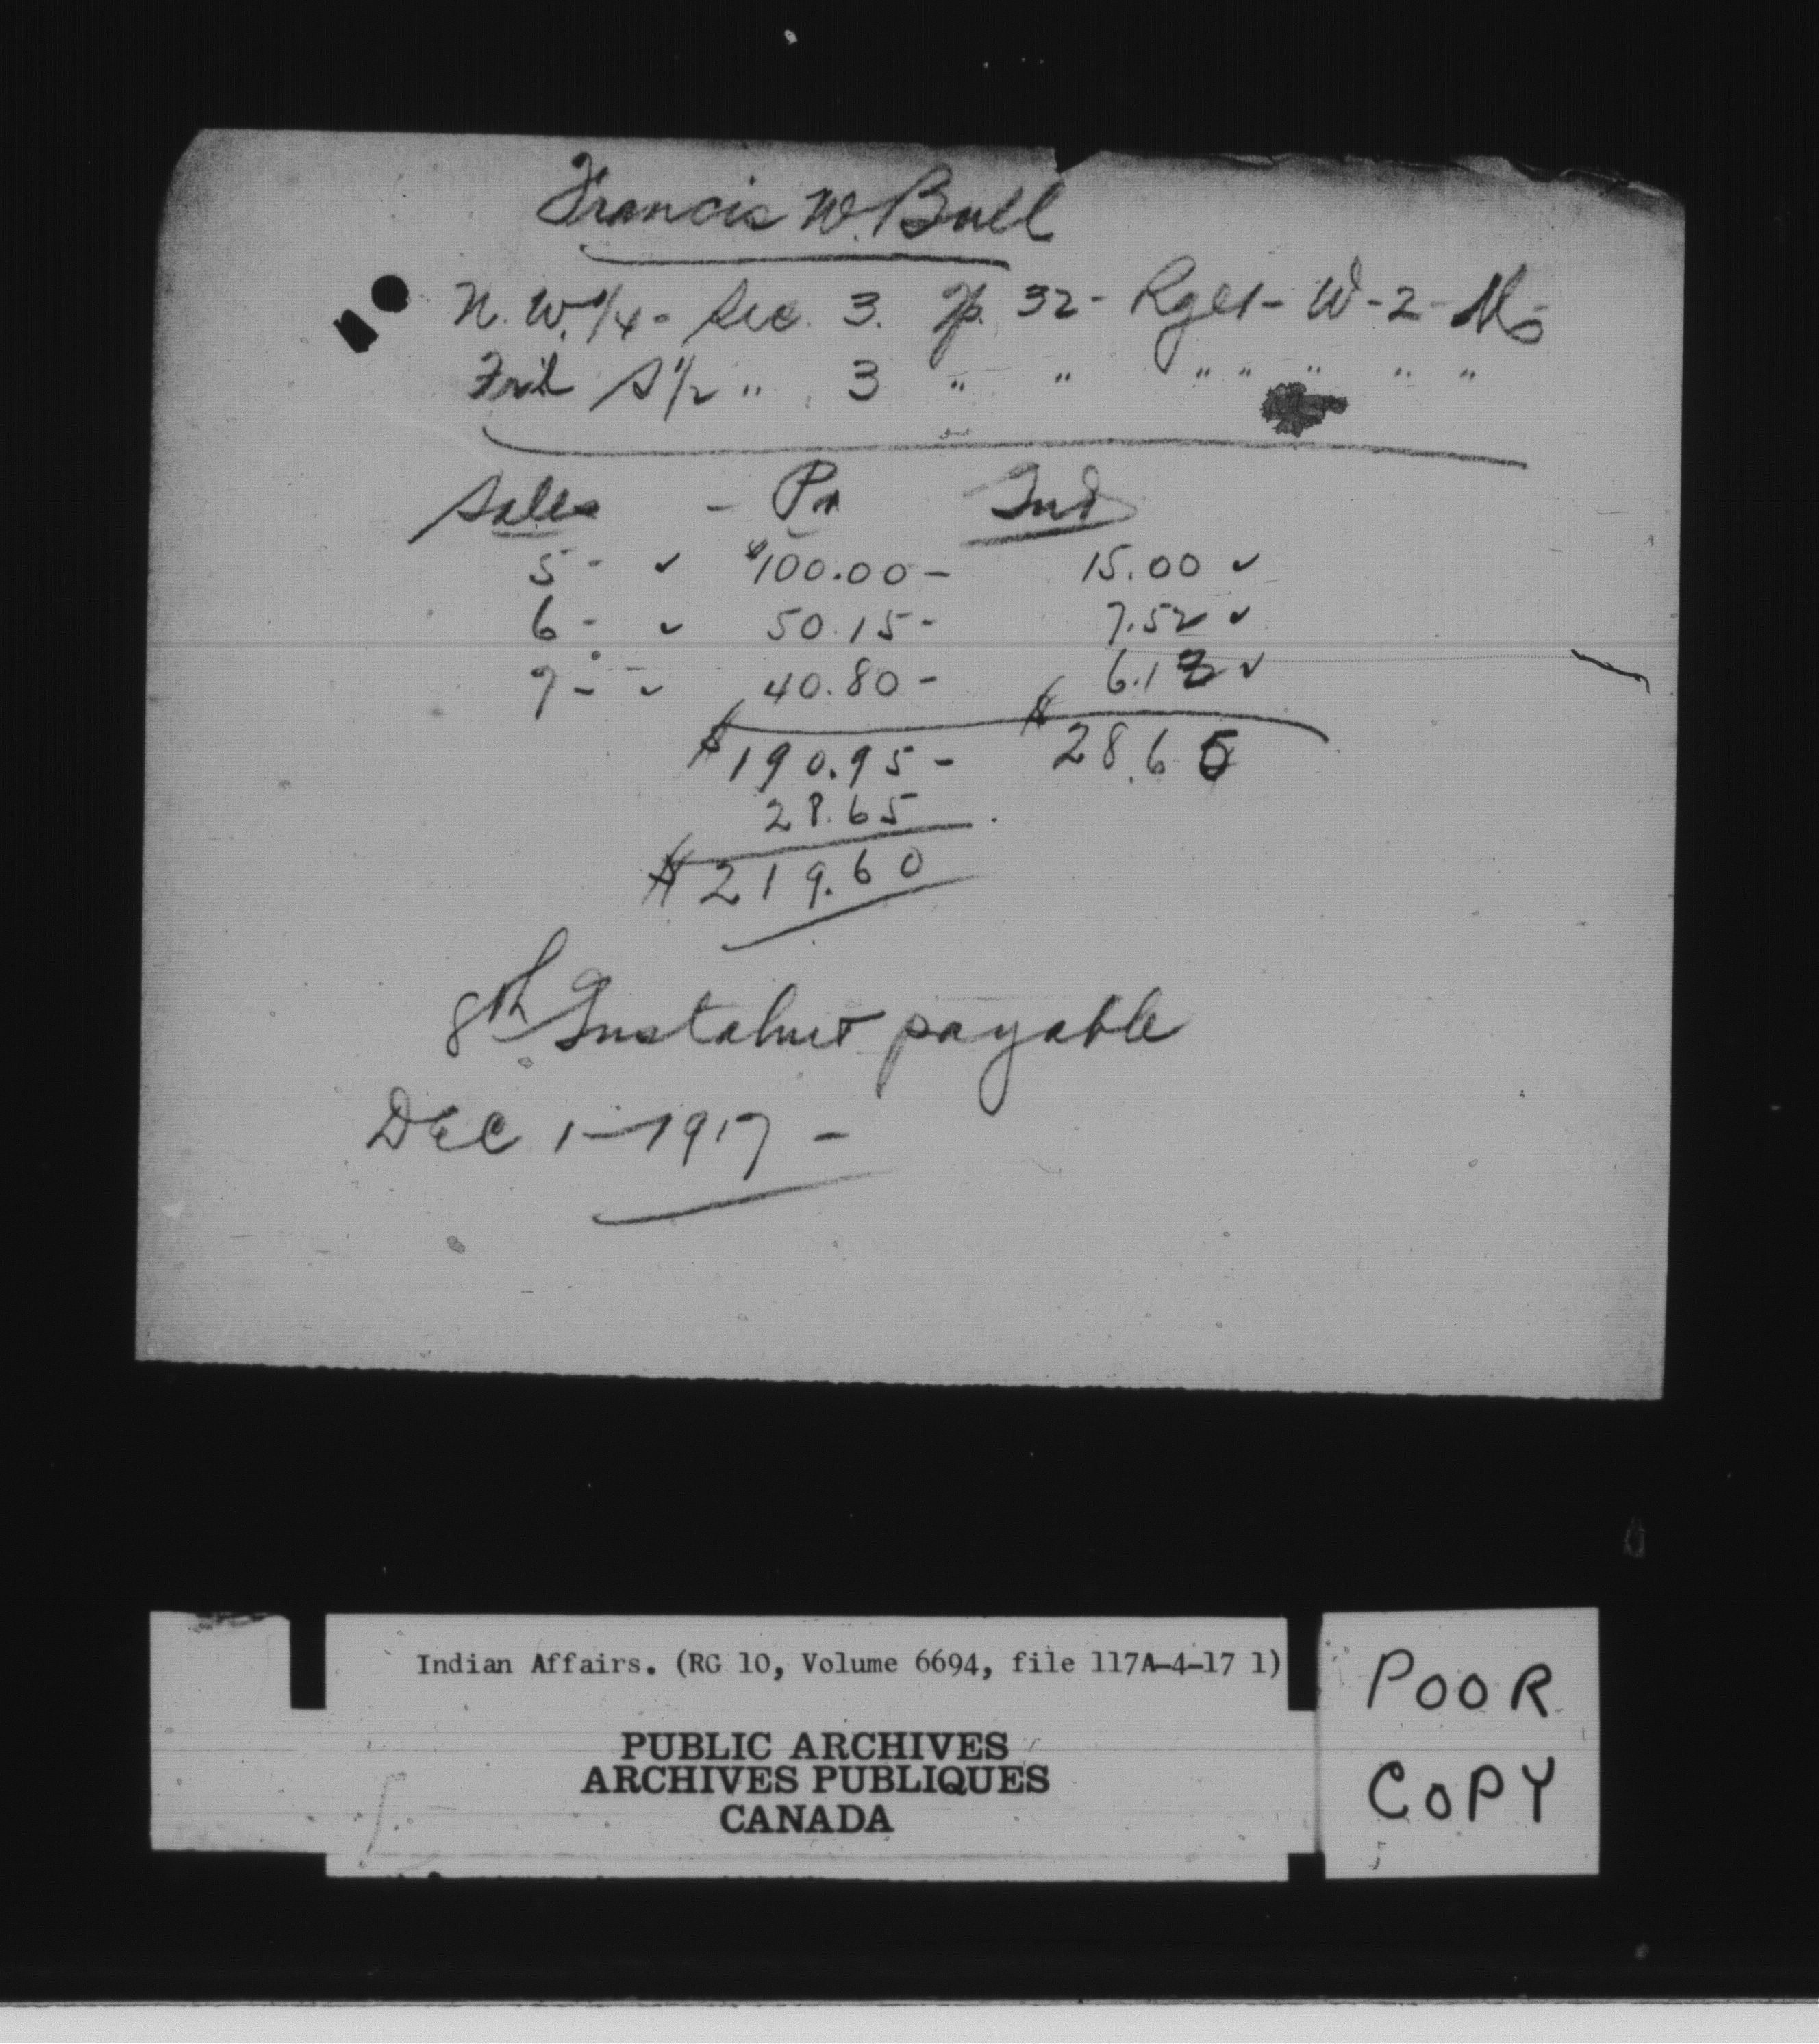 Francis W. Bull
N. W. 1/4 - Sec. 3. Tp. 32 - Rge 1 - W - 2 - M
Frl S 1/2 " 3 " " " " " " "
Sales - Pr Int
5 - ✓ $100.00 - 15.00 ✓
6 - ✓ 50.15 - 7.52 ✓
7 - ✓ 40.80 - 6.13 ✓
$190.95 - $28.65
28.65
$219.60
8th Instalmt payable
DEC 1 - 1917 -
Indian Affairs. (RG 10, Volume 6694, file 117A-4-17 1)
PUBLIC ARCHIVES
ARCHIVES PUBLIQUES
CANADA
POOR
COPY